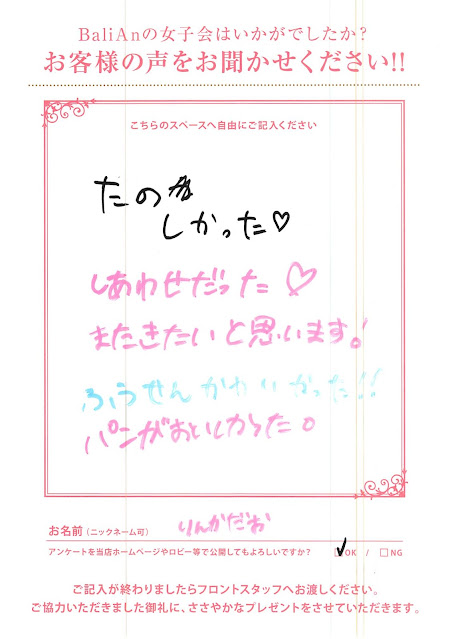 BaliAnの女子会はいかがでしたか?
お客様の声をお聞かせください!!
こちらのスペースへ自由にご記入ください
たの
しかった♡
しあわせだった♡
またきたいと思います!
ふうせんかわいかった!!
パンがおいしかった。
お名前(ニックネーム可) りんかだお
アンケートを当店ホームページやロビー等で公開してもよろしいですか? ☑OK / □NG
ご記入が終わりましたらフロントスタッフへお渡しください。
ご協力いただきました御礼に、ささやかなプレゼントをさせていただきます。